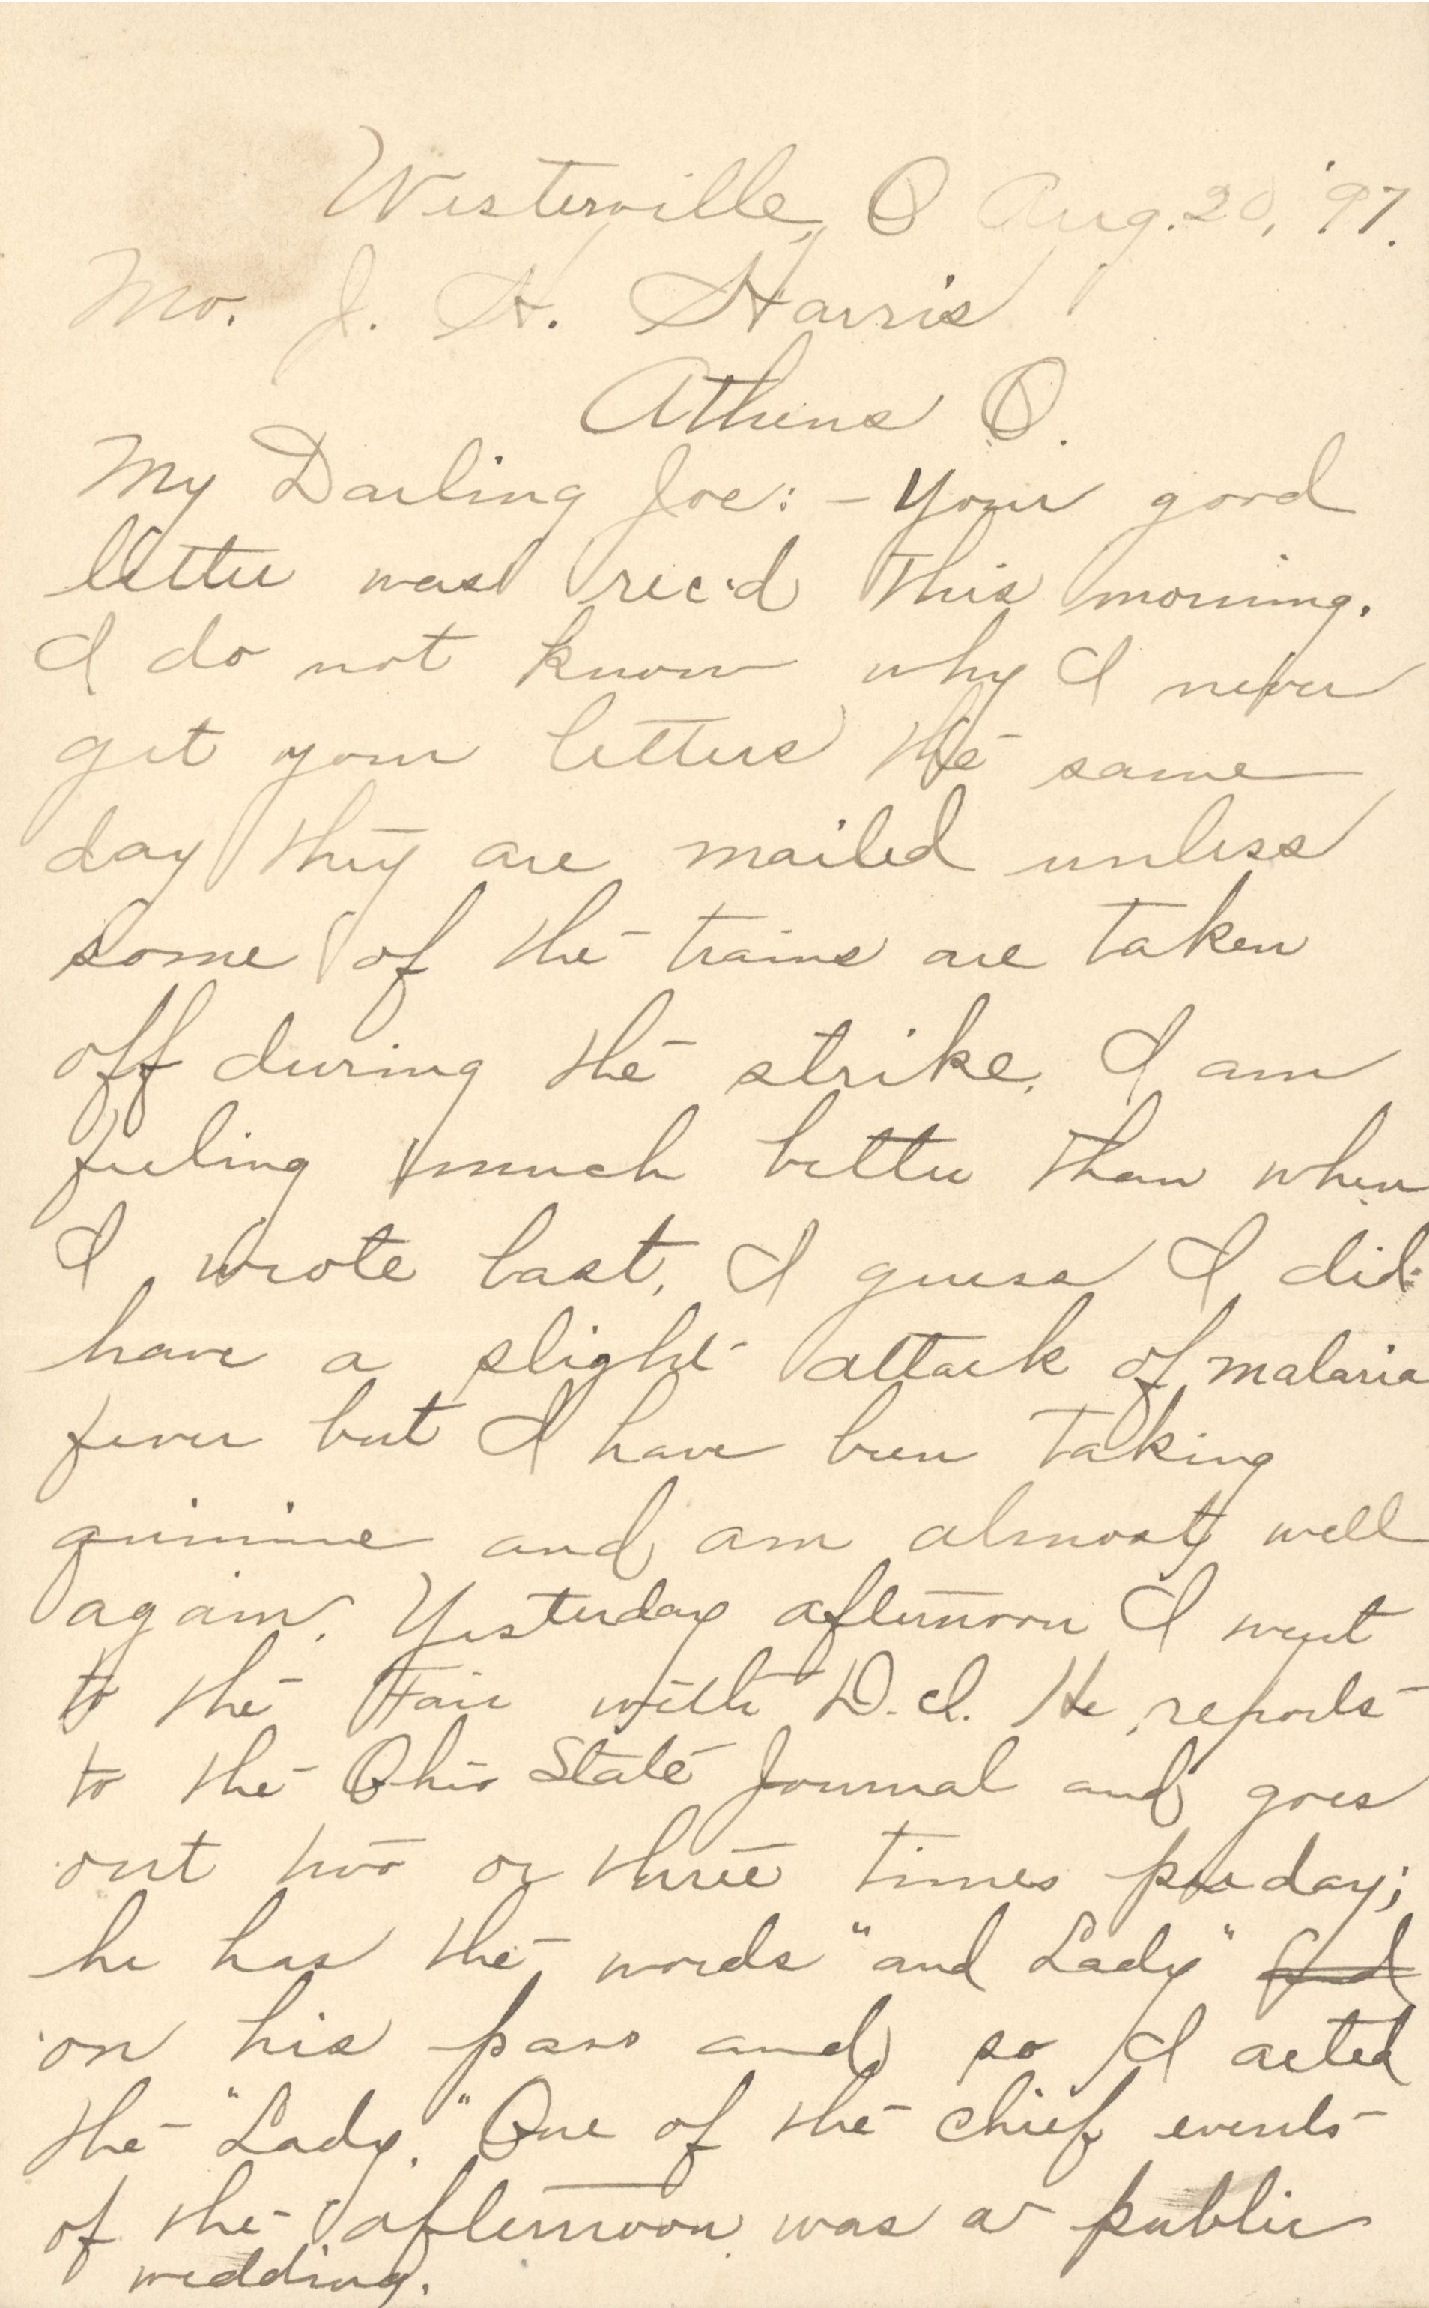 Westerville, O Aug. 20, '97.
Mr. J. H. Harris
Athens O.
My Darling Joe: - Your good
letter was rec'd this morning.
I do not know why I never
get your letters the same
day they are mailed unless
some of the trains are taken
off during the strike. I am
feeling much better than when
I wrote last. I guess I did
have a slight attack of malaria
fever but I have been taking
quinine and am almost well
again. Yesterday afternoon I went
to the Fair with D. I. He reports
to the Ohio State Journal and goes
out two or three times per day;
he has the words "and Lady"
on his pass and so I acted
the "Lady." One of the chief events
of the afternoon was a public
wedding.